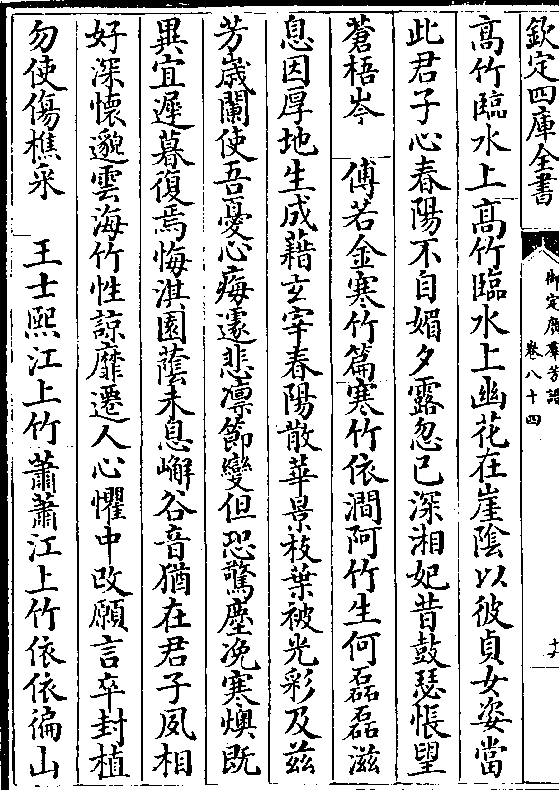 欽定四庫全書
御定廣羣芳譜
卷八十四
高竹臨水上高竹臨水上幽花在崖陰以彼貞女姿當
此君子心春陽不自媚夕露忽已深湘妃昔鼓瑟悵望
蒼梧岑　傅若金寒竹篇寒竹依澗阿竹生何磊磊滋
息因厚地生成藉玄宰春陽散華景枝葉被光彩及兹
芳嵗闌使吾憂心痗遽悲凛節變但恐驚塵浼寒燠既
異宜遲暮復焉悔淇園蔭未息嶰谷音猶在君子夙相
好深懷邈雲海竹性諒靡遷人心懼中改願言卒封植
勿使傷樵采　王士熙江上竹蕭蕭江上竹依依徧山